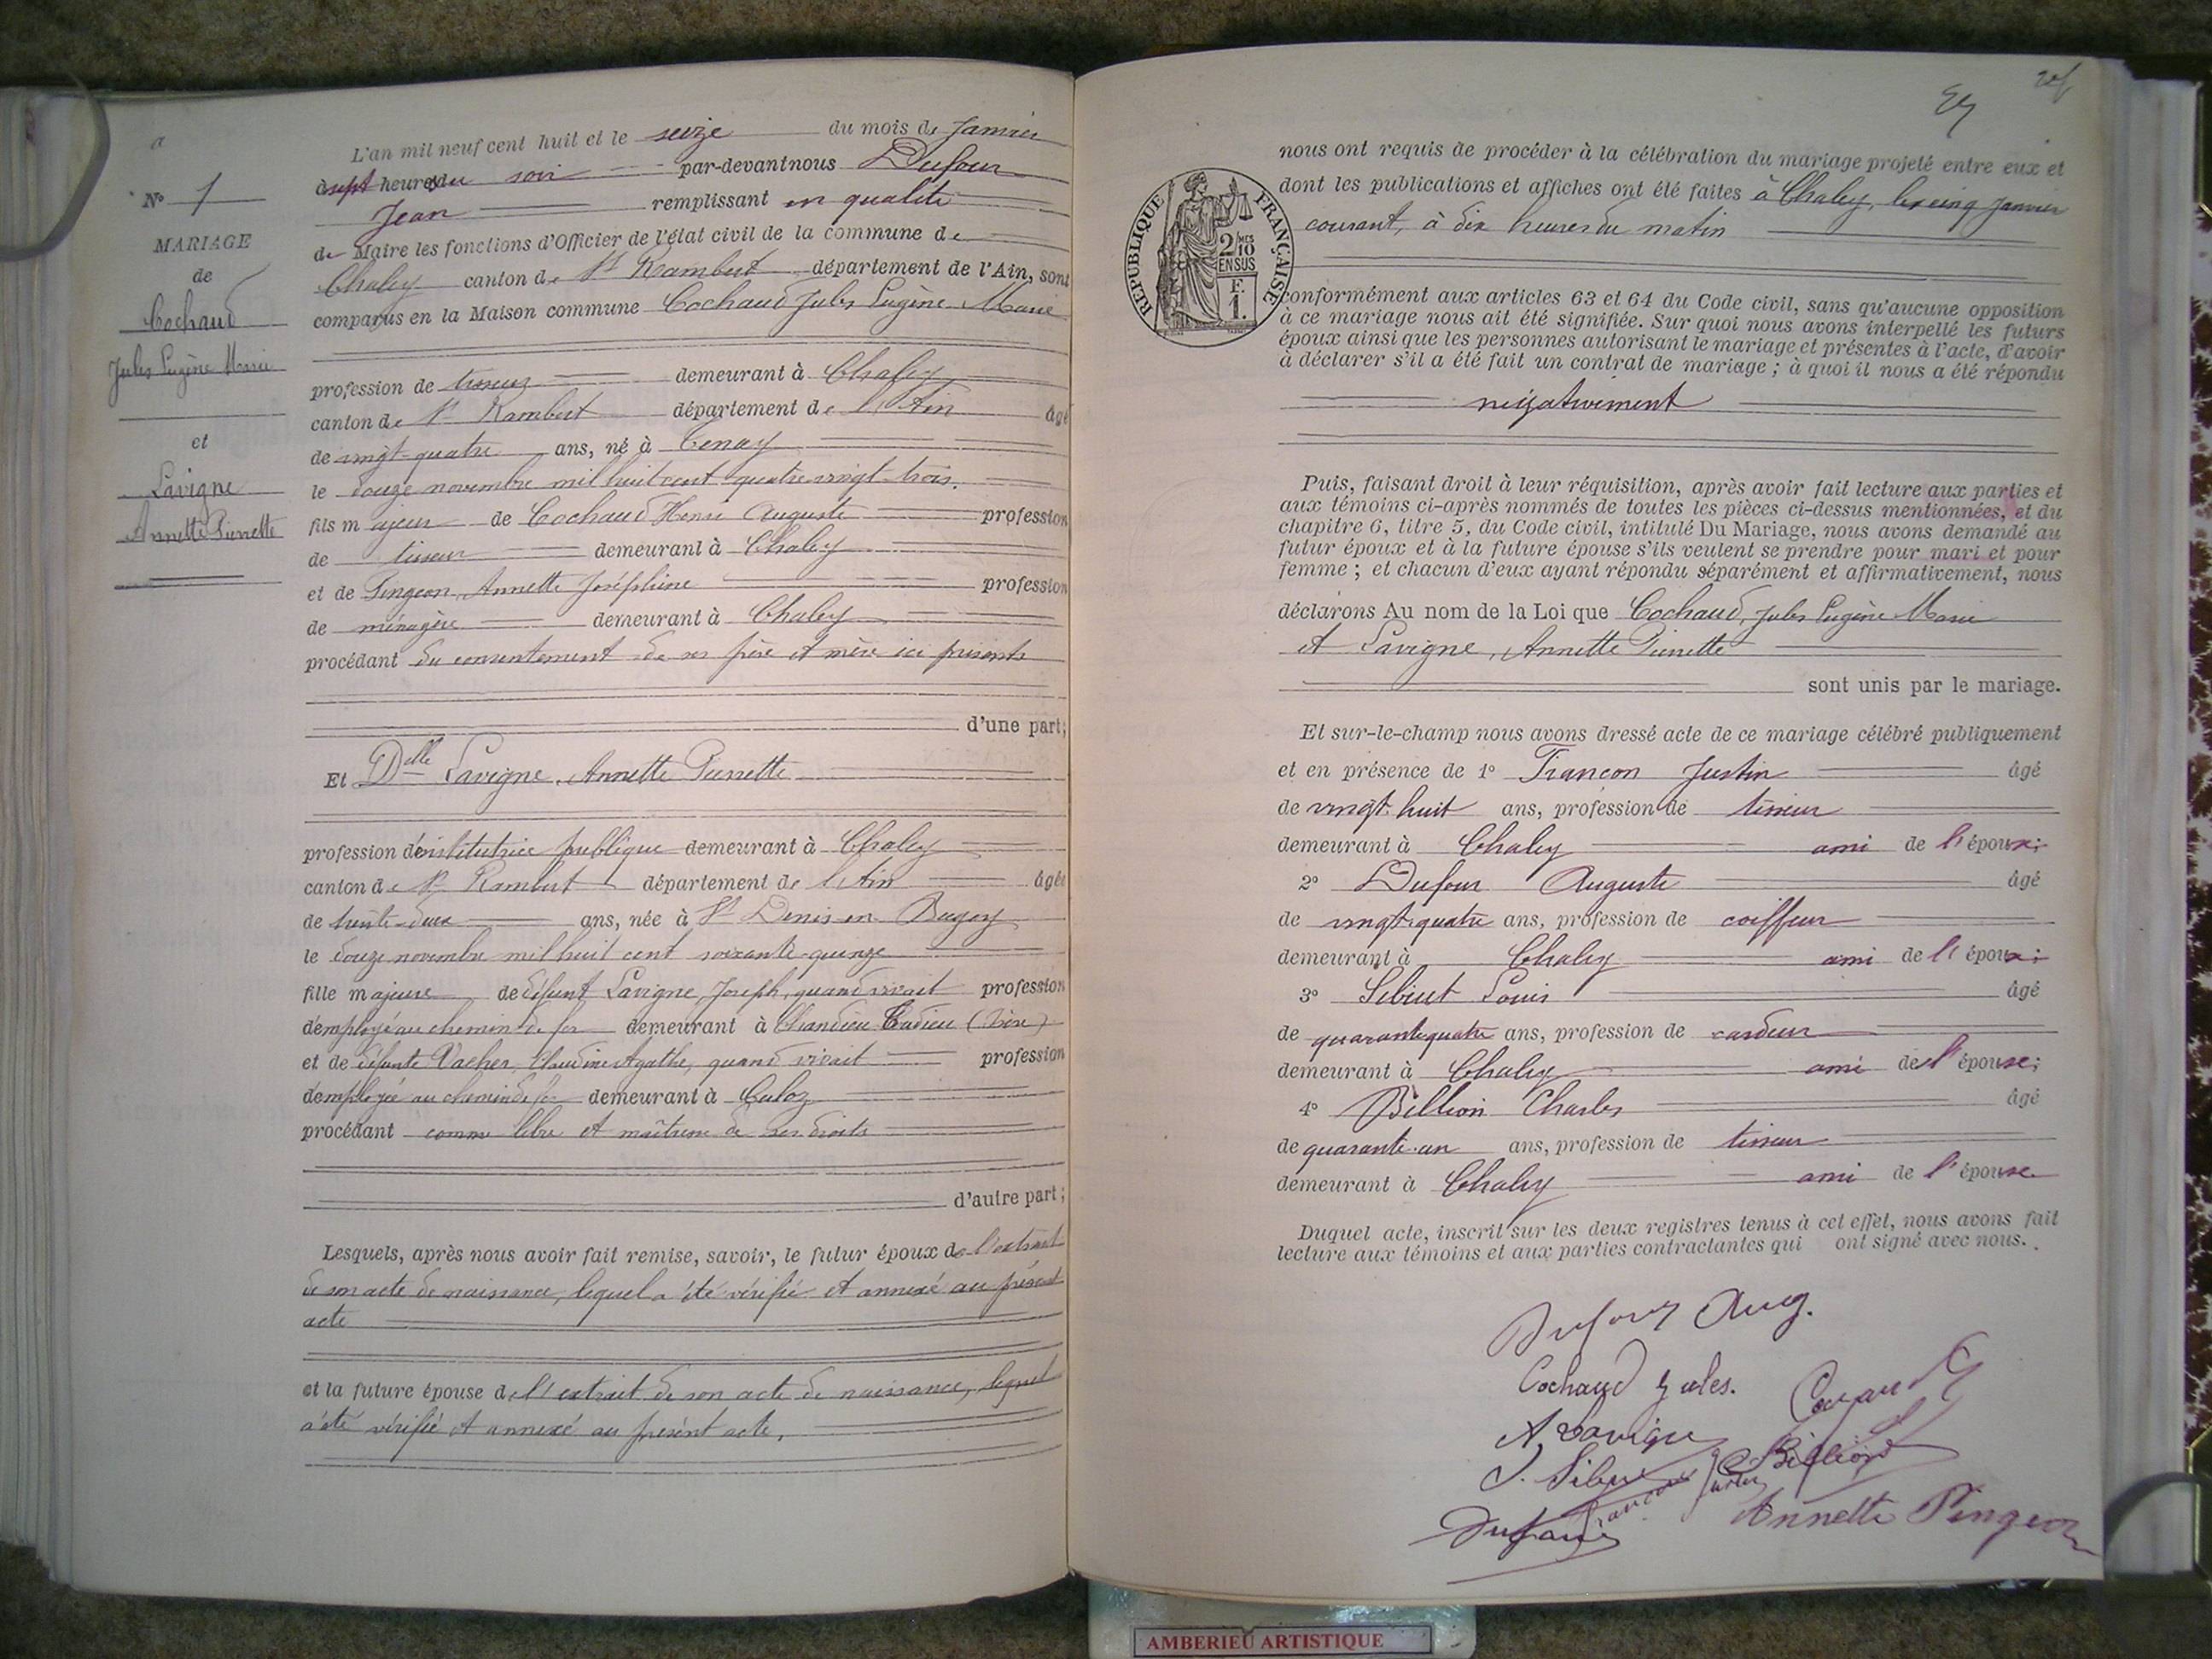 Nº 1
MARIAGE
de
Cochaud
Jules Eugène Marie
et
Lavigne
Annette Pierrette
L'an mil neuf cent huit et le seize du mois de Janvier
à sept heures du soir par-devant nous Dufour
Jean remplissant en qualité
de Maire les fonctions d'Officier de l'état civil de la commune de
Chaley canton de St Rambert département de l'Ain, sont
comparus en la Maison commune Cochaud Jules Eugène Marie
profession de tisseur demeurant à Chaley
canton de St Rambert département de l'Ain âgé
de vingt-quatre ans, né à Tenay
le douze novembre mil huit cent quatre-vingt-trois.
fils majeur de Cochaud Henri Auguste profession
de tisseur demeurant à Chaley
et de Pingeon, Annette Joséphine profession
de ménagère demeurant à Chaley
procédant du consentement de ses père et mère ici présents
d'une part;
Et Delle Lavigne, Annette Pierrette
profession d'institutrice publique demeurant à Chaley
canton de St Rambert département de l'Ain âgée
de trente-deux ans, née à St Denis-en-Bugey
le douze novembre mil huit cent soixante-quinze
fille majeure de défunt Lavigne, Joseph, quand vivait profession
d'employé au chemin de fer demeurant à Chandieu (Isère)
et de défunte Vacher, Claudine Agathe, quand vivait profession
d'employée au chemin de fer demeurant à Culoz
procédant comme libre et maîtresse de ses droits
d'autre part;
Lesquels, après nous avoir fait remise, savoir, le futur époux de l'extrait
de son acte de naissance, lequel a été vérifié et annexé au présent
acte
et la future épouse de l'extrait de son acte de naissance, lequel
a été vérifié et annexé au présent acte.
nous ont requis de procéder à la célébration du mariage projeté entre eux et
dont les publications et affiches ont été faites à Chaley, le cinq Janvier
courant, à dix heures du matin
RÉPUBLIQUE FRANÇAISE
2/10 MES
EN SUS
F.
1.
conformément aux articles 63 et 64 du Code civil, sans qu'aucune opposition
à ce mariage nous ait été signifiée. Sur quoi nous avons interpellé les futurs
époux ainsi que les personnes autorisant le mariage et présentes à l'acte, d'avoir
à déclarer s'il a été fait un contrat de mariage ; à quoi il nous a été répondu
négativement
Puis, faisant droit à leur réquisition, après avoir fait lecture aux parties et
aux témoins ci-après nommés de toutes les pièces ci-dessus mentionnées, et du
chapitre 6, titre 5, du Code civil, intitulé Du Mariage, nous avons demandé au
futur époux et à la future épouse s'ils veulent se prendre pour mari et pour
femme ; et chacun d'eux ayant répondu séparément et affirmativement, nous
déclarons Au nom de la Loi que Cochaud, Jules Eugène Marie
et Lavigne, Annette Pierrette
sont unis par le mariage.
Et sur-le-champ nous avons dressé acte de ce mariage célébré publiquement
et en présence de 1º Francon Justin âgé
de vingt-huit ans, profession de tisseur
demeurant à Chaley ami de l'époux;
2º Dufour Auguste âgé
de vingt-quatre ans, profession de coiffeur
demeurant à Chaley ami de l'époux;
3º Sibuet Louis âgé
de quarante-quatre ans, profession de cardeur
demeurant à Chaley ami de l'épouse;
4º Billion Charles âgé
de quarante-un ans, profession de tisseur
demeurant à Chaley ami de l'épouse
Duquel acte, inscrit sur les deux registres tenus à cet effet, nous avons fait
lecture aux témoins et aux parties contractantes qui ont signé avec nous.
Dufour Aug.
Cochaud Jules.
A Lavigne
Billion
Annette Pingeon
AMBERIEU ARTISTIQUE